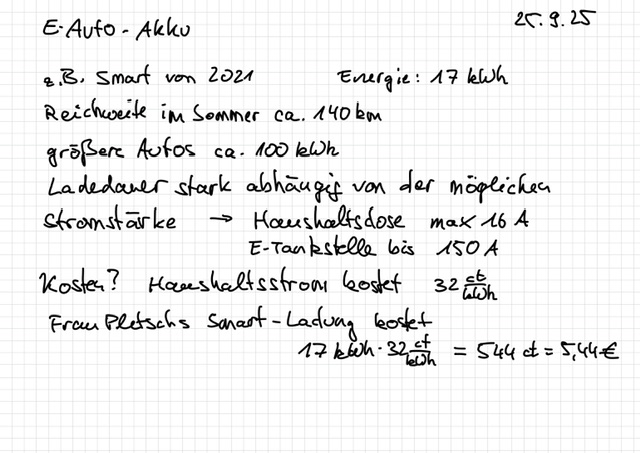 E-Auto-Akku 25.9.25
z.B. Smart von 2021 Energie: 17 kWh
Reichweite im Sommer ca. 140 km
größere Autos ca. 100 kWh
Ladedauer stark abhängig von der möglichen
Stromstärke → Haushaltsdose max 16 A
E-Tankstelle bis 150 A
Kosten? Haushaltsstrom kostet 32 ct/kWh
Frau Pletschs Smart-Ladung kostet
17 kWh · 32 ct/kWh = 544 ct = 5,44 €